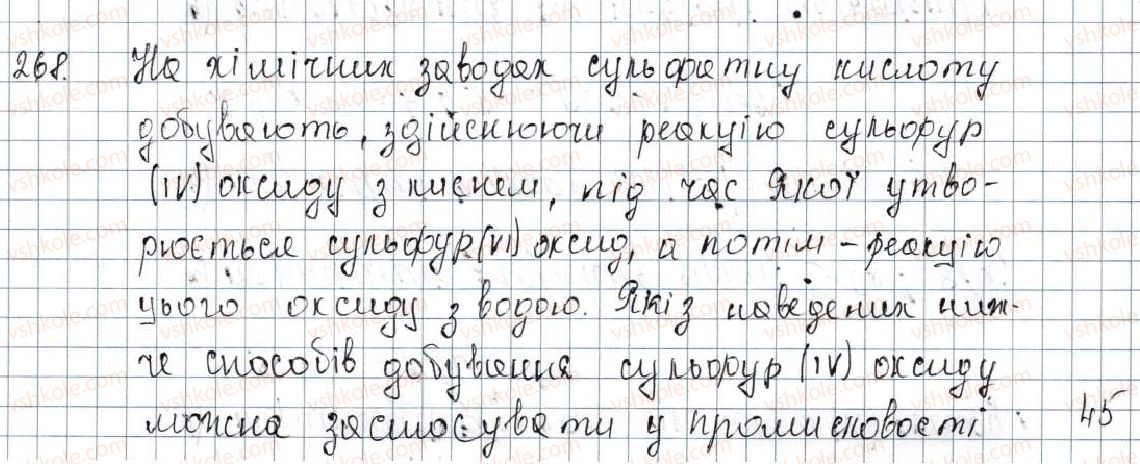 268. На хімічних заводах сульфатну кислоту
добувають, здійснюючи реакцію сульфур
(IV) оксиду з киснем, під час якої утво-
рюється сульфур (VI) оксид, а потім - реакцію
цього оксиду з водою. Які з наведених ниж-
че способів добування сульфур (IV) оксиду
можна застосувати у промисловості 45